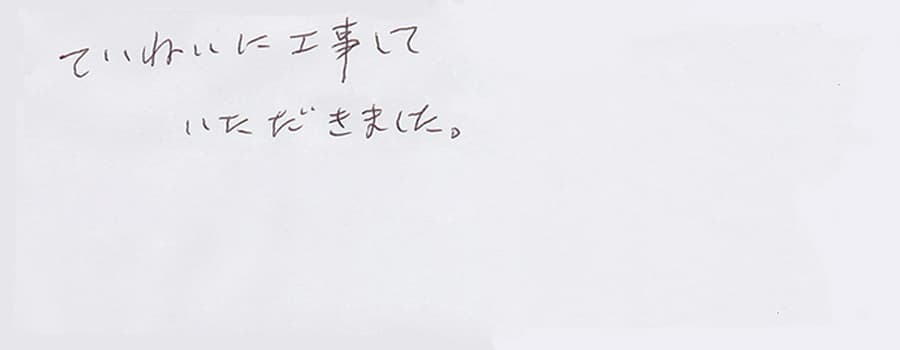 ていねいに工事して
いただきました。